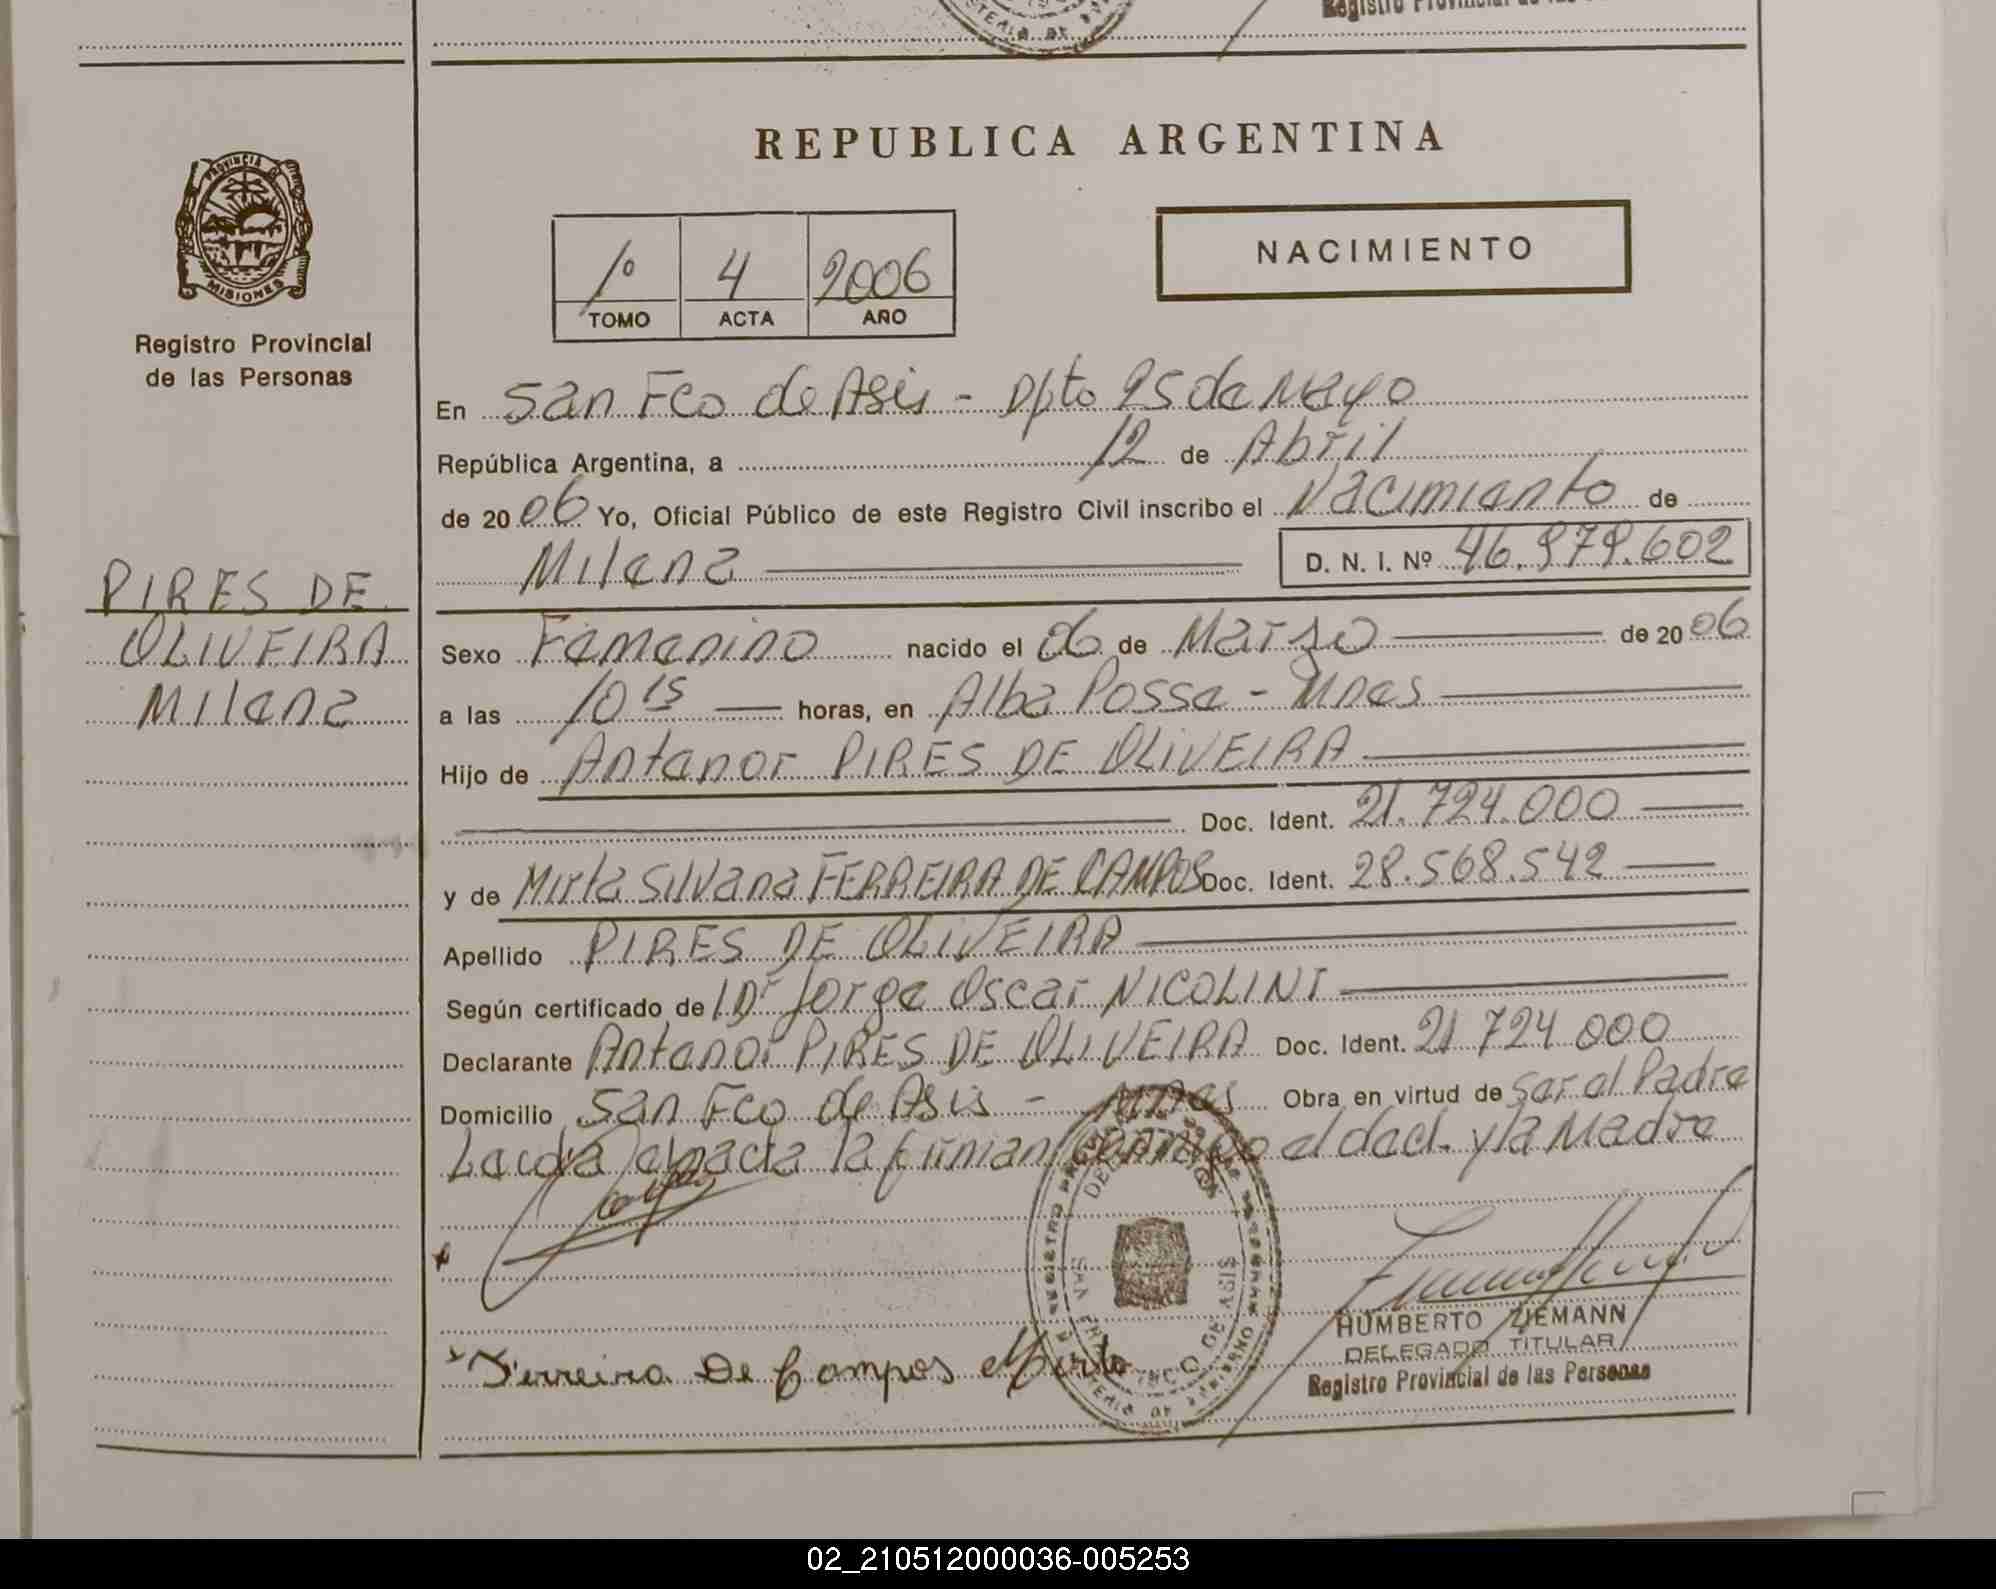 Registro Provincial de las
REPUBLICA ARGENTINA
PROVINCIA DE
MISIONES
Registro Provincial
de las Personas
PIRES DE
OLIVEIRA
Milena
1º 4 2006
TOMO ACTA AÑO
NACIMIENTO
En San Fco de Asis - Dpto 25 de Mayo
República Argentina, a 12 de Abril
de 2006 Yo, Oficial Público de este Registro Civil inscribo el Nacimiento de
Milena D. N. I. Nº 46.979.602
Sexo Femenino nacido el 06 de Marzo de 2006
a las 10 15 horas, en Alba Posse - Mnes
Hijo de Antenor PIRES DE OLIVEIRA
Doc. Ident. 21.724.000
y de Mirta Silvana FERREIRA DE CAMPOS Doc. Ident. 28.568.542
Apellido PIRES DE OLIVEIRA
Según certificado de Dr Jorge Oscar NICOLINI
Declarante Antenor PIRES DE OLIVEIRA Doc. Ident. 21.724.000
Domicilio San Fco de Asis - Mnes Obra en virtud de Ser el Padre
Leida el acta la firman conmigo el decl. y la Madre
Ferreira De Campos Mirta
SAN FRANCISCO DE ASIS
HUMBERTO ZIEMANN
DELEGADO TITULAR
Registro Provincial de las Personas
02_210512000036-005253